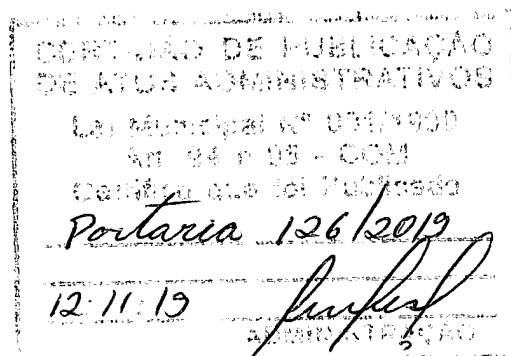 CERTIDÃO DE PUBLICAÇÃO
DE ATOS ADMINISTRATIVOS
Lei Municipal Nº
Art. 94 e 95 - COM
Certifico que foi Publicado
Portaria 126/2019
12.11.19